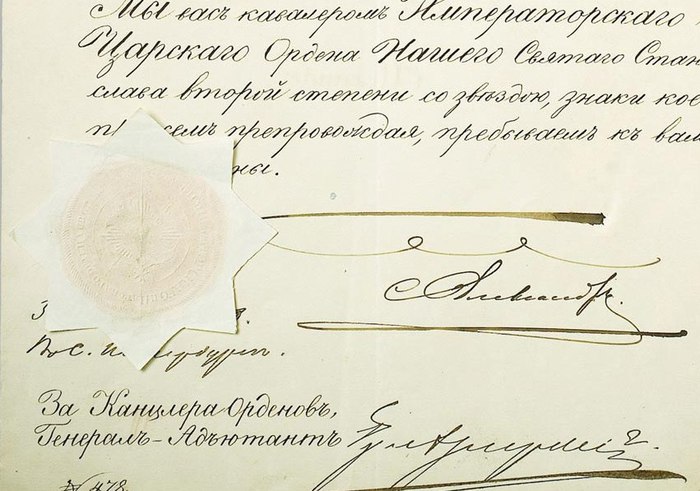 Мы васъ кавалеромъ Императорскаго
Царскаго Ордена Нашего Святаго Стани
слава второй степени со звѣздою, знаки кое
при семъ препровождая, пребываемъ къ вам
ны.
Александръ.
Въ С. Петербургѣ.
За Канцлера Орденовъ,
Генералъ-Адъютантъ
№ 478.